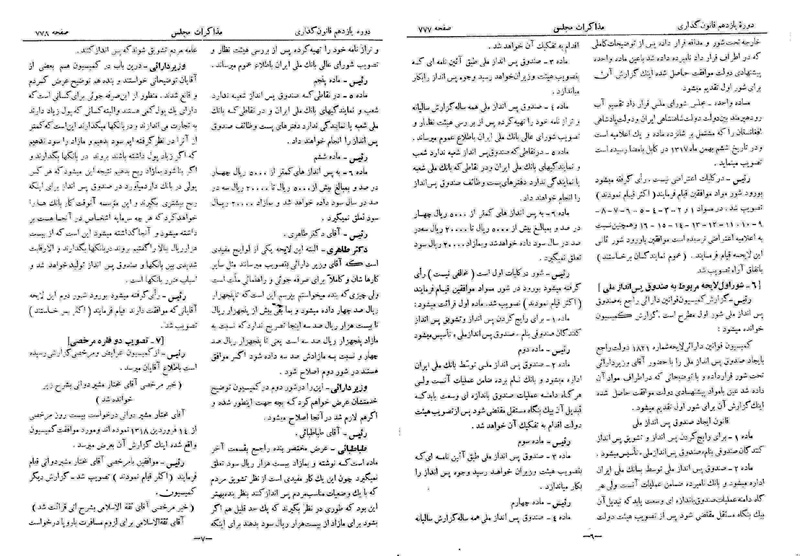 دوره یازدهم قانون گذاری
مذاکرات مجلس
صفحه ۷۷۷
خارجه تحت شور و مداقه قرار داده پس از توضیحات کاملی
که در اطراف قرار داد نامبرده داده شد بالنتیجه عین ماده واحده
پیشنهادی دولت موافقت حاصل شده اینک گزارش آن
برای شور اول تقدیم میشود
ماده واحده - مجلس شورای ملی قرار داد تقسیم آب
رود هیرمند بین دولت شاهنشاهی ایران و دولت پادشاهی
افغانستان را که مشتمل بر شانزده ماده و یک اعلامیه است
و در تاریخ ششم بهمن ماه ۱۳۱۷ در کابل بامضا رسیده است
تصویب مینماید.
رئیس - در کلیات اعتراضی نیست رأی گرفته میشود
بورود شور مواد موافقین قیام فرمایند (اکثر قیام نمودند)
تصویب شد. در مواد ۱ - ۲ - ۳ - ۴ - ۵ - ۶ - ۷ - ۸
۹ - ۱۰ - ۱۱ - ۱۲ - ۱۳ - ۱۴ - ۱۵ - ۱۶ و همچنین نسبت
به اعلامیه اعتراضی نرسیده است موافقین باورود شور ثانی
این لایحه قیام فرمایند. (عموم نمایندگان برخاستند)
باتفاق آراء تصویب شد.
[ ۶ - شور اول لایحه مربوط به صندوق پس انداز ملی ]
رئیس - گزارش کمیسیون قوانین دارائی راجع به صندوق
پس انداز ملی شور اول مطرح است. گزارش کمیسیون
خوانده میشود :
کمیسیون قوانین دارائی لایحه شماره ۱۸۲۱ دولت راجع
بایجاد صندوق پس انداز ملی را با حضور آقای وزیر دارائی
تحت شور قرار داده و با توضیحاتی که در اطراف مواد آن
داده شد عین بامواد پیشنهادی دولت موافقت حاصل شده
اینک گزارش آن برای شور اول تقدیم میشود.
قانون ایجاد صندوق پس انداز ملی
ماده ۱ - برای رایج کردن پس انداز و تشویق پس انداز
کنندگان صندوقی بنام صندوق پس انداز ملی تأسیس میشود.
ماده ۲ - صندوق پس انداز ملی توسط بانک ملی ایران
اداره میشود و بانک نامبرده ضامن عملیات آنست ولی هر
گاه دامنه عملیات صندوق باندازه ای وسعت یابد که تبدیل آن
بیک بنگاه مستقل مقتضی شود پس از تصویب هیئت دولت
اقدام به تفکیک آن خواهد شد.
ماده ۳ - صندوق پس انداز ملی طبق آئین نامه ای که
بتصویب هیئت وزیران خواهد رسید وجوه پس انداز را بکار
میاندازد.
ماده ۴ - صندوق پس انداز ملی همه ساله گزارش سالیانه
و تراز نامه خود را تهیه کرده پس از بررسی هیئت نظار و
تصویب شورای عالی بانک ملی ایران باطلاع عموم میرساند.
ماده ۵ - در نقاطی که صندوق پس انداز شعبه ندارد شعب
و نمایندگیهای بانک ملی ایران و در نقاطی که بانک ملی شعبه
یا نمایندگی ندارد دفترهای پست وظائف صندوق پس انداز را
انجام خواهند داد.
ماده ۶ - به پس انداز های کمتر از ۵۰۰۰ ریال چهار
درصد و بمبالغ بیش از ۵۰۰۰ ریال تا ۲۰۰۰۰ ریال سه
در صد در سال سود داده خواهد شد و بمازاد ۲۰۰۰۰ ریال سود
تعلق نمیگیرد.
رئیس - شور در کلیات اول است (مخالفی نیست) رأی
گرفته میشود بورود در شور مواد موافقین قیام فرمایند
(اکثر قیام نمودند) تصویب شد. ماده اول قرائت میشود:
ماده ۱ - برای رایج کردن پس انداز و تشویق پس انداز
کنندگان صندوقی بنام صندوق پس انداز ملی تأسیس میشود
رئیس - ماده دوم
ماده ۲ - صندوق پس انداز ملی توسط بانک ملی ایران
اداره میشود و بانک نام برده ضامن عملیات آنست ولی
هر گاه دامنه عملیات صندوق باندازه ای وسعت یابد که
تبدیل آن بیک بنگاه مستقل مقتضی شود پس از تصویب هیئت
دولت اقدام به تفکیک آن خواهد شد.
رئیس - ماده سوم
ماده ۳ - صندوق پس انداز ملی طبق آئین نامه ای که
بتصویب هیئت وزیران خواهد رسید وجوه پس انداز را
بکار میاندازد.
رئیس - ماده چهارم
ماده ۴ - صندوق پس انداز ملی همه ساله گزارش سالیانه
- ۶ -
دوره یازدهم قانون گذاری
مذاکرات مجلس
صفحه ۷۷۸
و تراز نامه خود را تهیه کرده پس از بررسی هیئت نظار و
تصویب شورای عالی بانک ملی ایران باطلاع عموم میرساند.
رئیس - ماده پنجم
ماده ۵ - در نقاطی که صندوق پس انداز شعبه ندارد
شعب و نمایندگیهای بانک ملی ایران و در نقاطی که بانک
ملی شعبه یا نمایندگی ندارد دفترهای پست وظائف صندوق
پس انداز را انجام خواهند داد.
رئیس - ماده ششم
ماده ۶ - به پس انداز های کمتر از ۵۰۰۰ ریال چهار
در صد و بمبالغ بیش از ۵۰۰۰ ریال تا ۲۰۰۰۰ ریال سه در
صد در سال سود داده خواهد شد و بمازاد ۲۰۰۰۰ ریال سود
تعلق نمیگیرد.
رئیس - آقای دکتر طاهری.
دکتر طاهری - البته این لایحه یکی از لوایح مفیدی
است که آقای وزیر دارائی بتصویب میرسانند مثل سایر
کارها شان و کاملاً برای صرفه جوئی و رفاهیت مالی ملت است
ولی چیزی که بنده میخواستم بپرسم این است که تا پنجهزار
ریال صد چهار داده میشود و بمبالغ بیش از پنجهزار ریال
تا بیست هزار ریال صد سه اینجا تصریح ندارد که نسبت به
مازاد پنجهزار ریال صد سه است یعنی تا پنجهزار ریال صد
چهار و نسبت بمازادش صد سه داده شود اگر موافق
هستند در شور دوم اصلاح شود.
وزیر دارائی - این را در شور دوم در کمیسیون توضیح
خدمتشان عرض خواهم کرد که بچه جهت اینطور شده و
اگر هم لازم شد در آنجا اصلاح میشود.
رئیس - آقای طباطبائی.
طباطبائی - عرض مختصر بنده راجع بقسمت آخر
ماده است که نوشته و بمازاد بیست هزار ریال سود تعلق
نمیگیرد چون این یک کار مفیدی است از نظر تشویق مردم
که با یک وضعیات مناسب مردم پس انداز کنند بنده بهتر
این بود که طوری در نظر بگیرند که سود به همه داده
بشود برای مازاد از بیست هزار ریال سود بدهند برای اینکه
عامه مردم تشویق شوند که پس انداز کنند.
وزیر دارائی - در این باب در کمیسیون هم بعضی از
آقایان توضیحاتی خواستند و بنده هم توضیح عرض کردم
و قانع شدند. منظور از این صرفه جوئی برای کسانی است که
دارای یک پول کمی هستند والبته کسانی که پول زیاد دارند
به تجارت می اندازند و در بانکها میگذارند این است که کمتر
از آنرا در نظر گرفته ایم سود میدهیم و مازاد را سود ندهیم
که اگر زیاد پول داشته باشند بروند در بانکها بگذارند و
اگر بنا شود بمازاد ربح بدهیم نتیجه این میشود که هر کس
پولی در بانک دارد میآورد در صندوق پس انداز برای اینکه
ربح بیشتری بگیرد و این مؤسسه آنوقت کار بانک ها را
خواهد کرد که هر چه سرمایه اشخاص در آنجا هست بر
داشته میشود و آنجا گذاشته میشود این است که از بیست
هزار ریال بالا را گفتیم بروند در بانکها بگذارند والا رقابت
شدیدی بین بانکها و صندوق پس انداز تولید خواهد شد و
اسباب ضرر بانکها است.
رئیس - رأی گرفته میشود بورود شور دوم این لایحه
آقایانی که موافقت دارند قیام فرمایند (اکثر برخاستند)
تصویب شد.
[ ۷ - تصویب دو فقره مرخصی ]
رئیس - از کمیسیون عرایض و مرخصی گزارشی رسیده
است باطلاع آقایان میرسد.
(خبر مرخصی آقای مختار مشیر دوانی بشرح زیر
خوانده شد)
آقای مختار مشیر دوانی درخواست بیست روز مرخصی
از ۱۴ فروردین ۱۳۱۸ نموده اند و مورد موافقت کمیسیون
واقع شده اینک گزارش آن بعرض میرسد.
رئیس - موافقین با مرخصی آقای مختار مشیر دوانی قیام
فرمایند (اکثر قیام نمودند) تصویب شد. گزارش دیگر
کمیسیون.
(خبر مرخصی آقای ثقة الاسلامی بشرح آتی قرائت شد)
آقای ثقة الاسلامی برای لزوم مسافرت بارو پا درخواست
- ۷ -